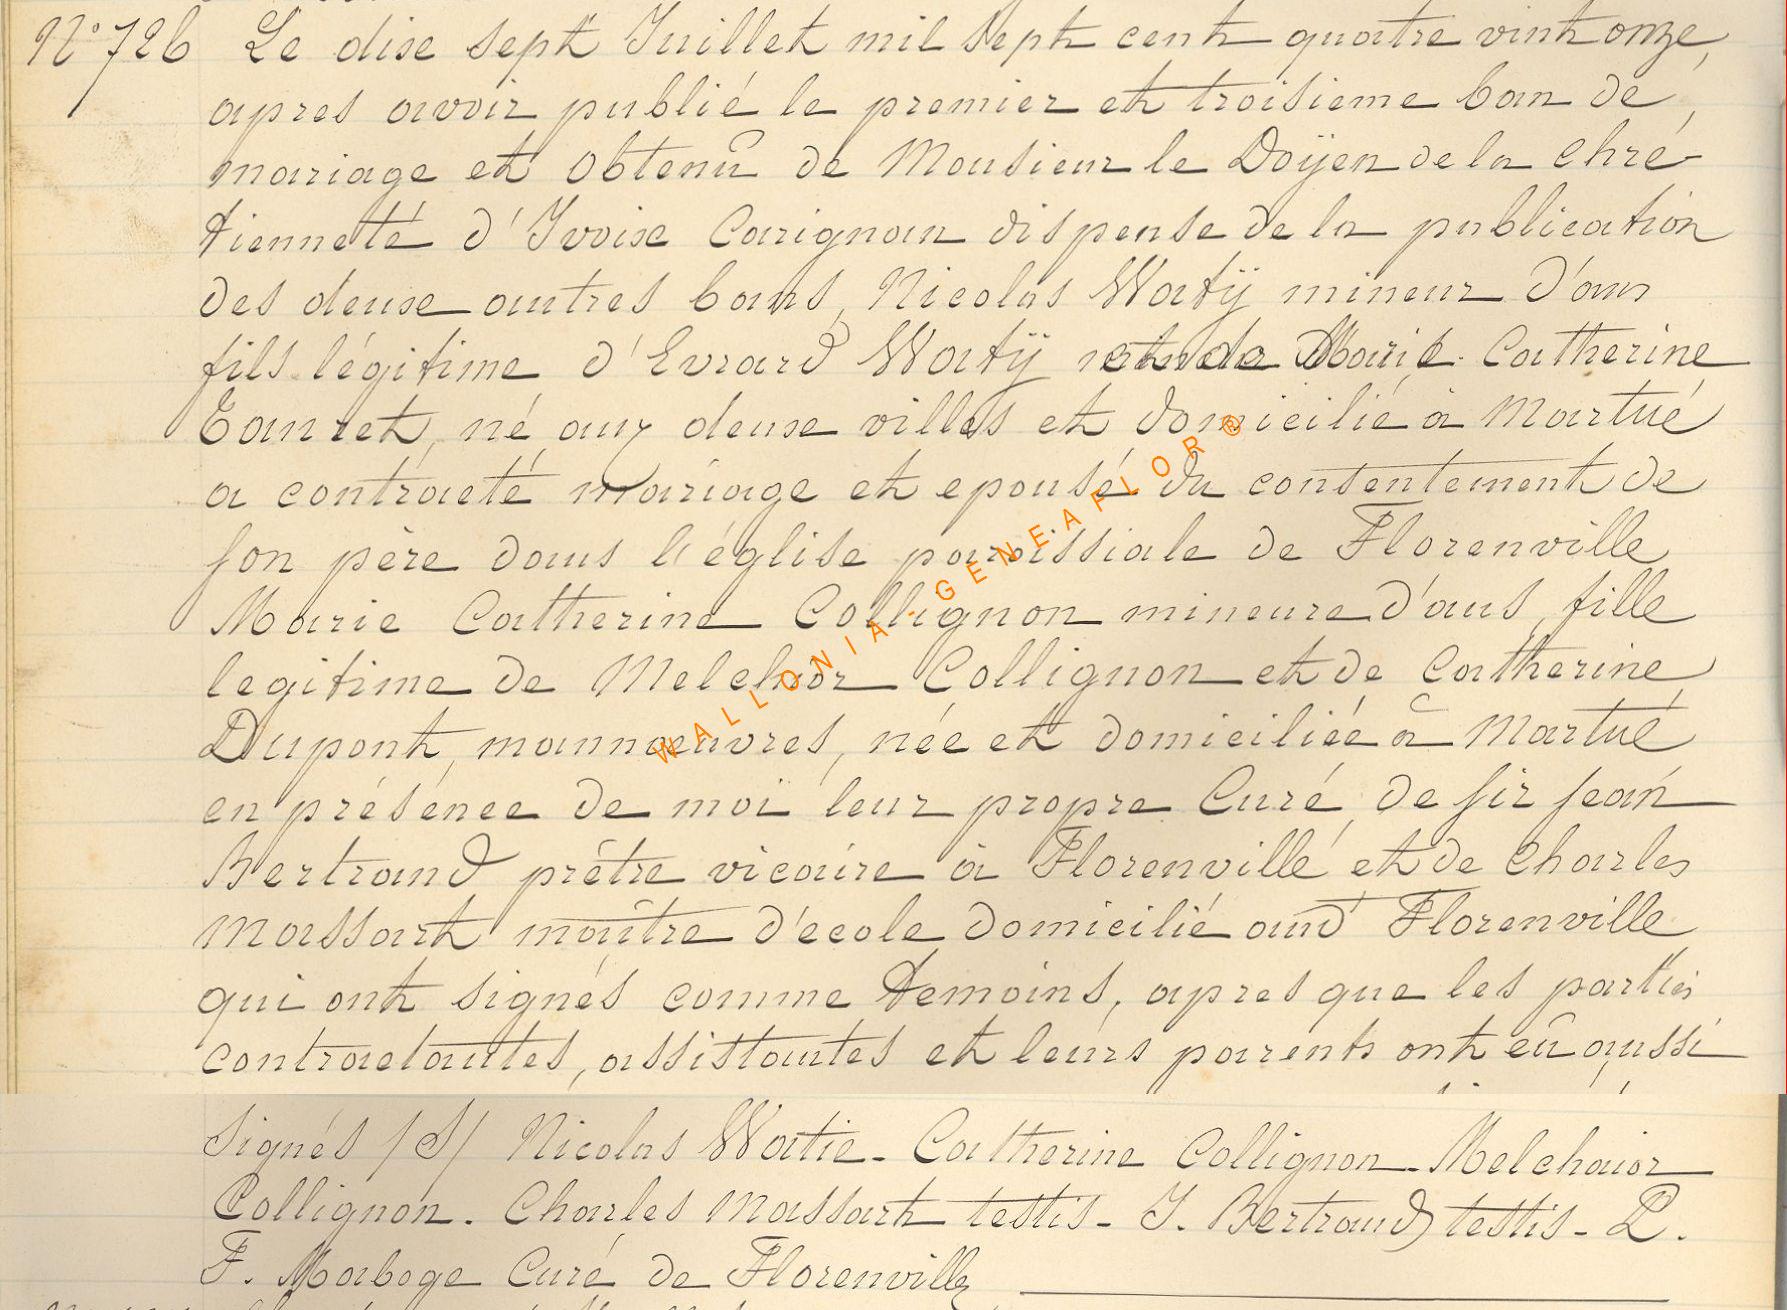 N° 726 Le dixe sept Juillet mil sept cent quatre vint onze,
apres avoir publié le premier et troisieme ban de
mariage et obtenû de Monsieur le Doÿen de la chré-
tienneté d'Ivoix Carignan dispense de la publication
des deuxe autres bans, Nicolas Watÿ mineur d'ans
fils légitime d'Evrard Watÿ et de Marie Catherine
né aux deuxe villes et domicilié à Martué
a contracté mariage et epousé du consentement de
son père dans l'église paroissiale de Florenville
Marie Catherine Collignon mineure d'ans, fille
legitime de Melchior Collignon et de Catherine
Dupont, mannoeuvres, née et domiciliée à Martué
en présence de moi leur propre Curé, de sir jean
Bertrand prêtre vicaire à Florenville et de Charles
Massart maître d'ecole domicilié aud^t Florenville
qui ont signés comme temoins, apres que les parties
contractantes, assistantes et leurs parents ont eû aussi
signés /S/ Nicolas Watie - Catherine Collignon - Melchaior
Collignon - Charles Massart testis - J. Bertrand testis - L.
F. Maboge Curé de Florenville
WALLONIA - GENEAFLOR ®